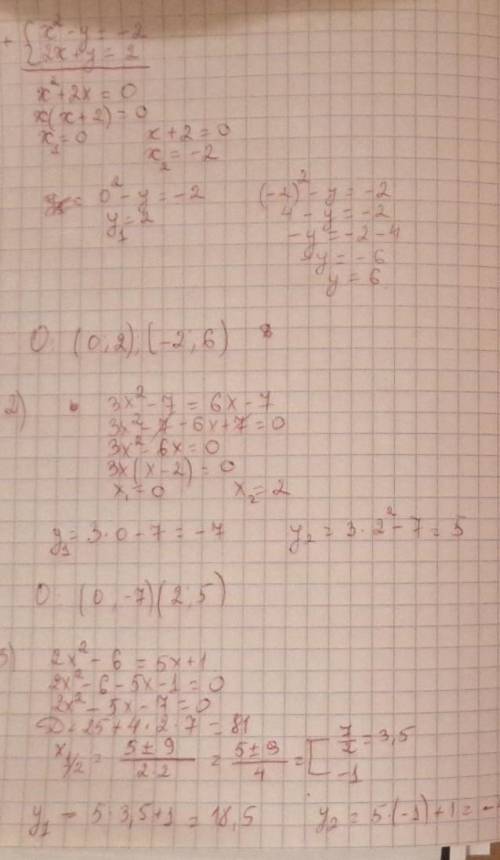 + { x² - y = -2
2x + y = 2
x² + 2x = 0
x(x + 2) = 0
x₁ = 0 x + 2 = 0
x₂ = -2
0² - y = -2 (-2)² - y = -2
y₁ = 2 4 - y = -2
-y = -2 - 4
-y = -6
y = 6
О: (0, 2), (-2, 6)
2) 3x² - 7 = 6x - 7
3x² - 7 - 6x + 7 = 0
3x² - 6x = 0
3x(x - 2) = 0
x₁ = 0 x₂ = 2
y₁ = 3·0 - 7 = -7 y₂ = 3·2² - 7 = 5
О: (0, -7) (2, 5)
3) 2x² - 6 = 5x + 1
2x² - 6 - 5x - 1 = 0
2x² - 5x - 7 = 0
D = 25 + 4·2·7 = 81
x₁/₂ = (5 ± 9)/(2·2) = (5 ± 9)/4 = [ 7/2 = 3,5
-1
y₁ = 5·3,5 + 1 = 18,5 y₂ = 5·(-1) + 1 = -